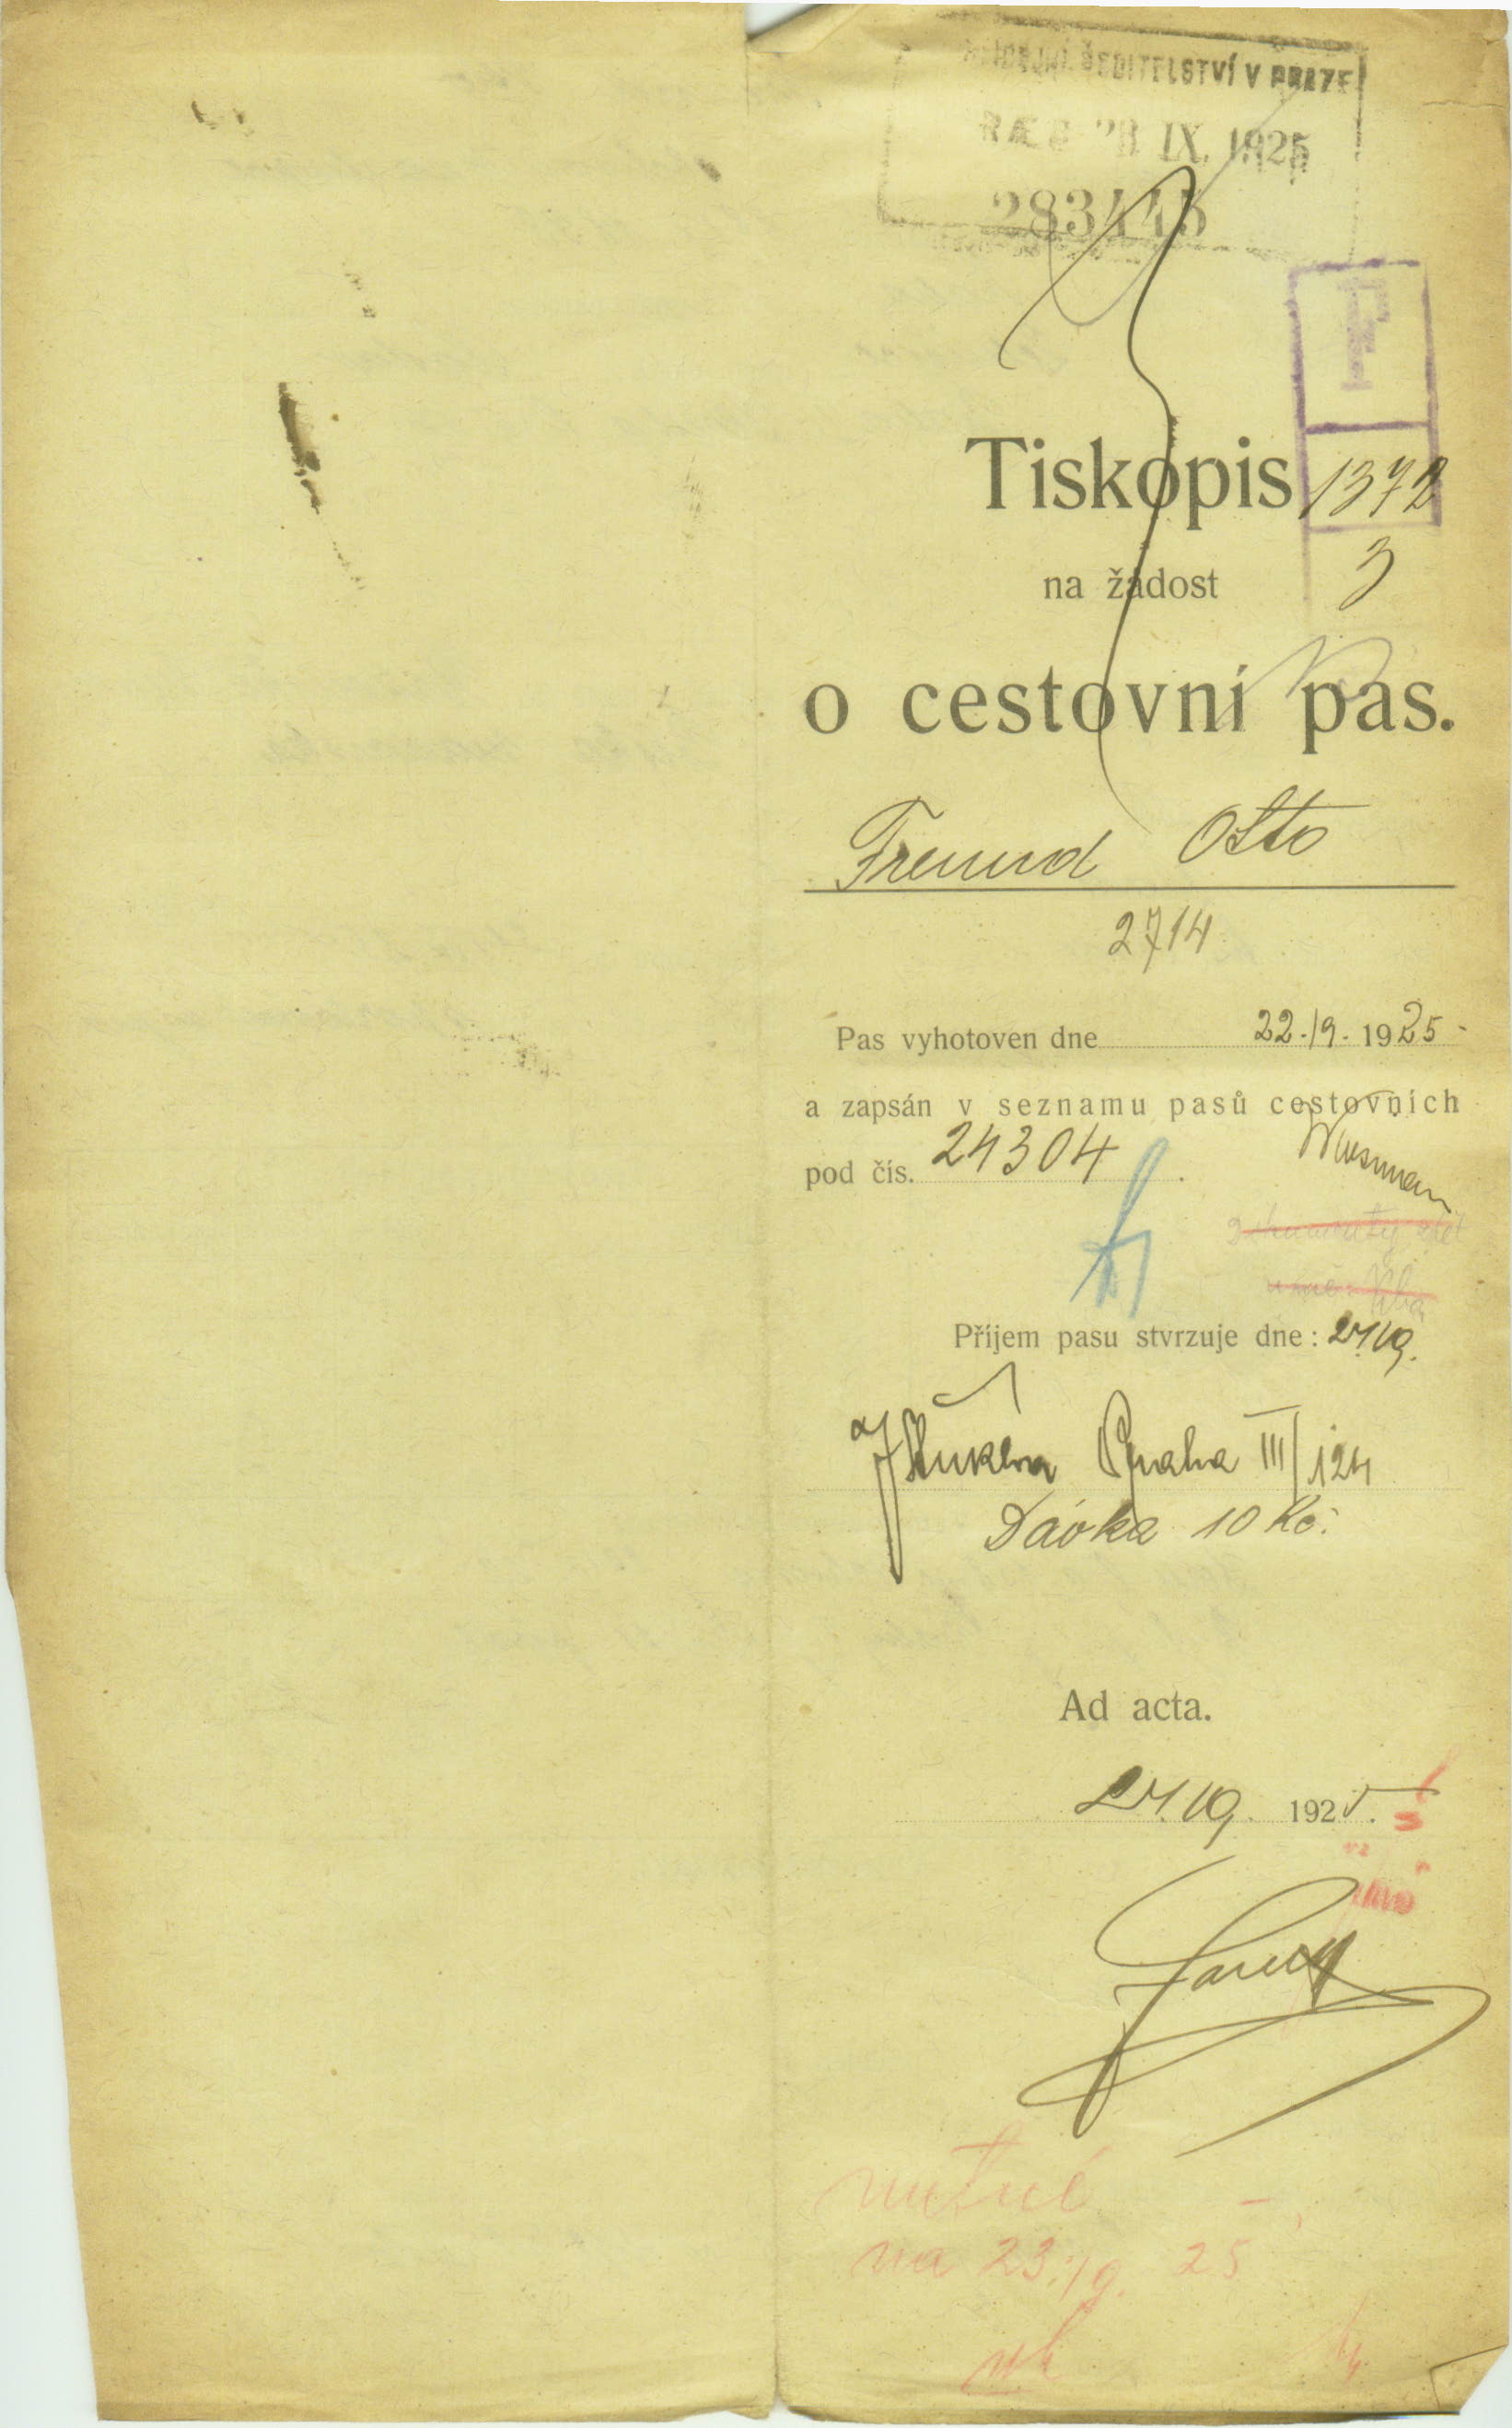 ŘEDITELSTVÍ V PRAZE
IX. 1925
283445
P
Tiskopis
1372
3
na žádost
o cestovní pas.
Freund Otto
2714
Pas vyhotoven dne 22./9. 1925
a zapsán v seznamu pasů cestovních
pod čís. 24304.
Příjem pasu stvrzuje dne:
Praha III/124
Dávka 10 Kč.
Ad acta.
192
nutné
na 23./9. 25